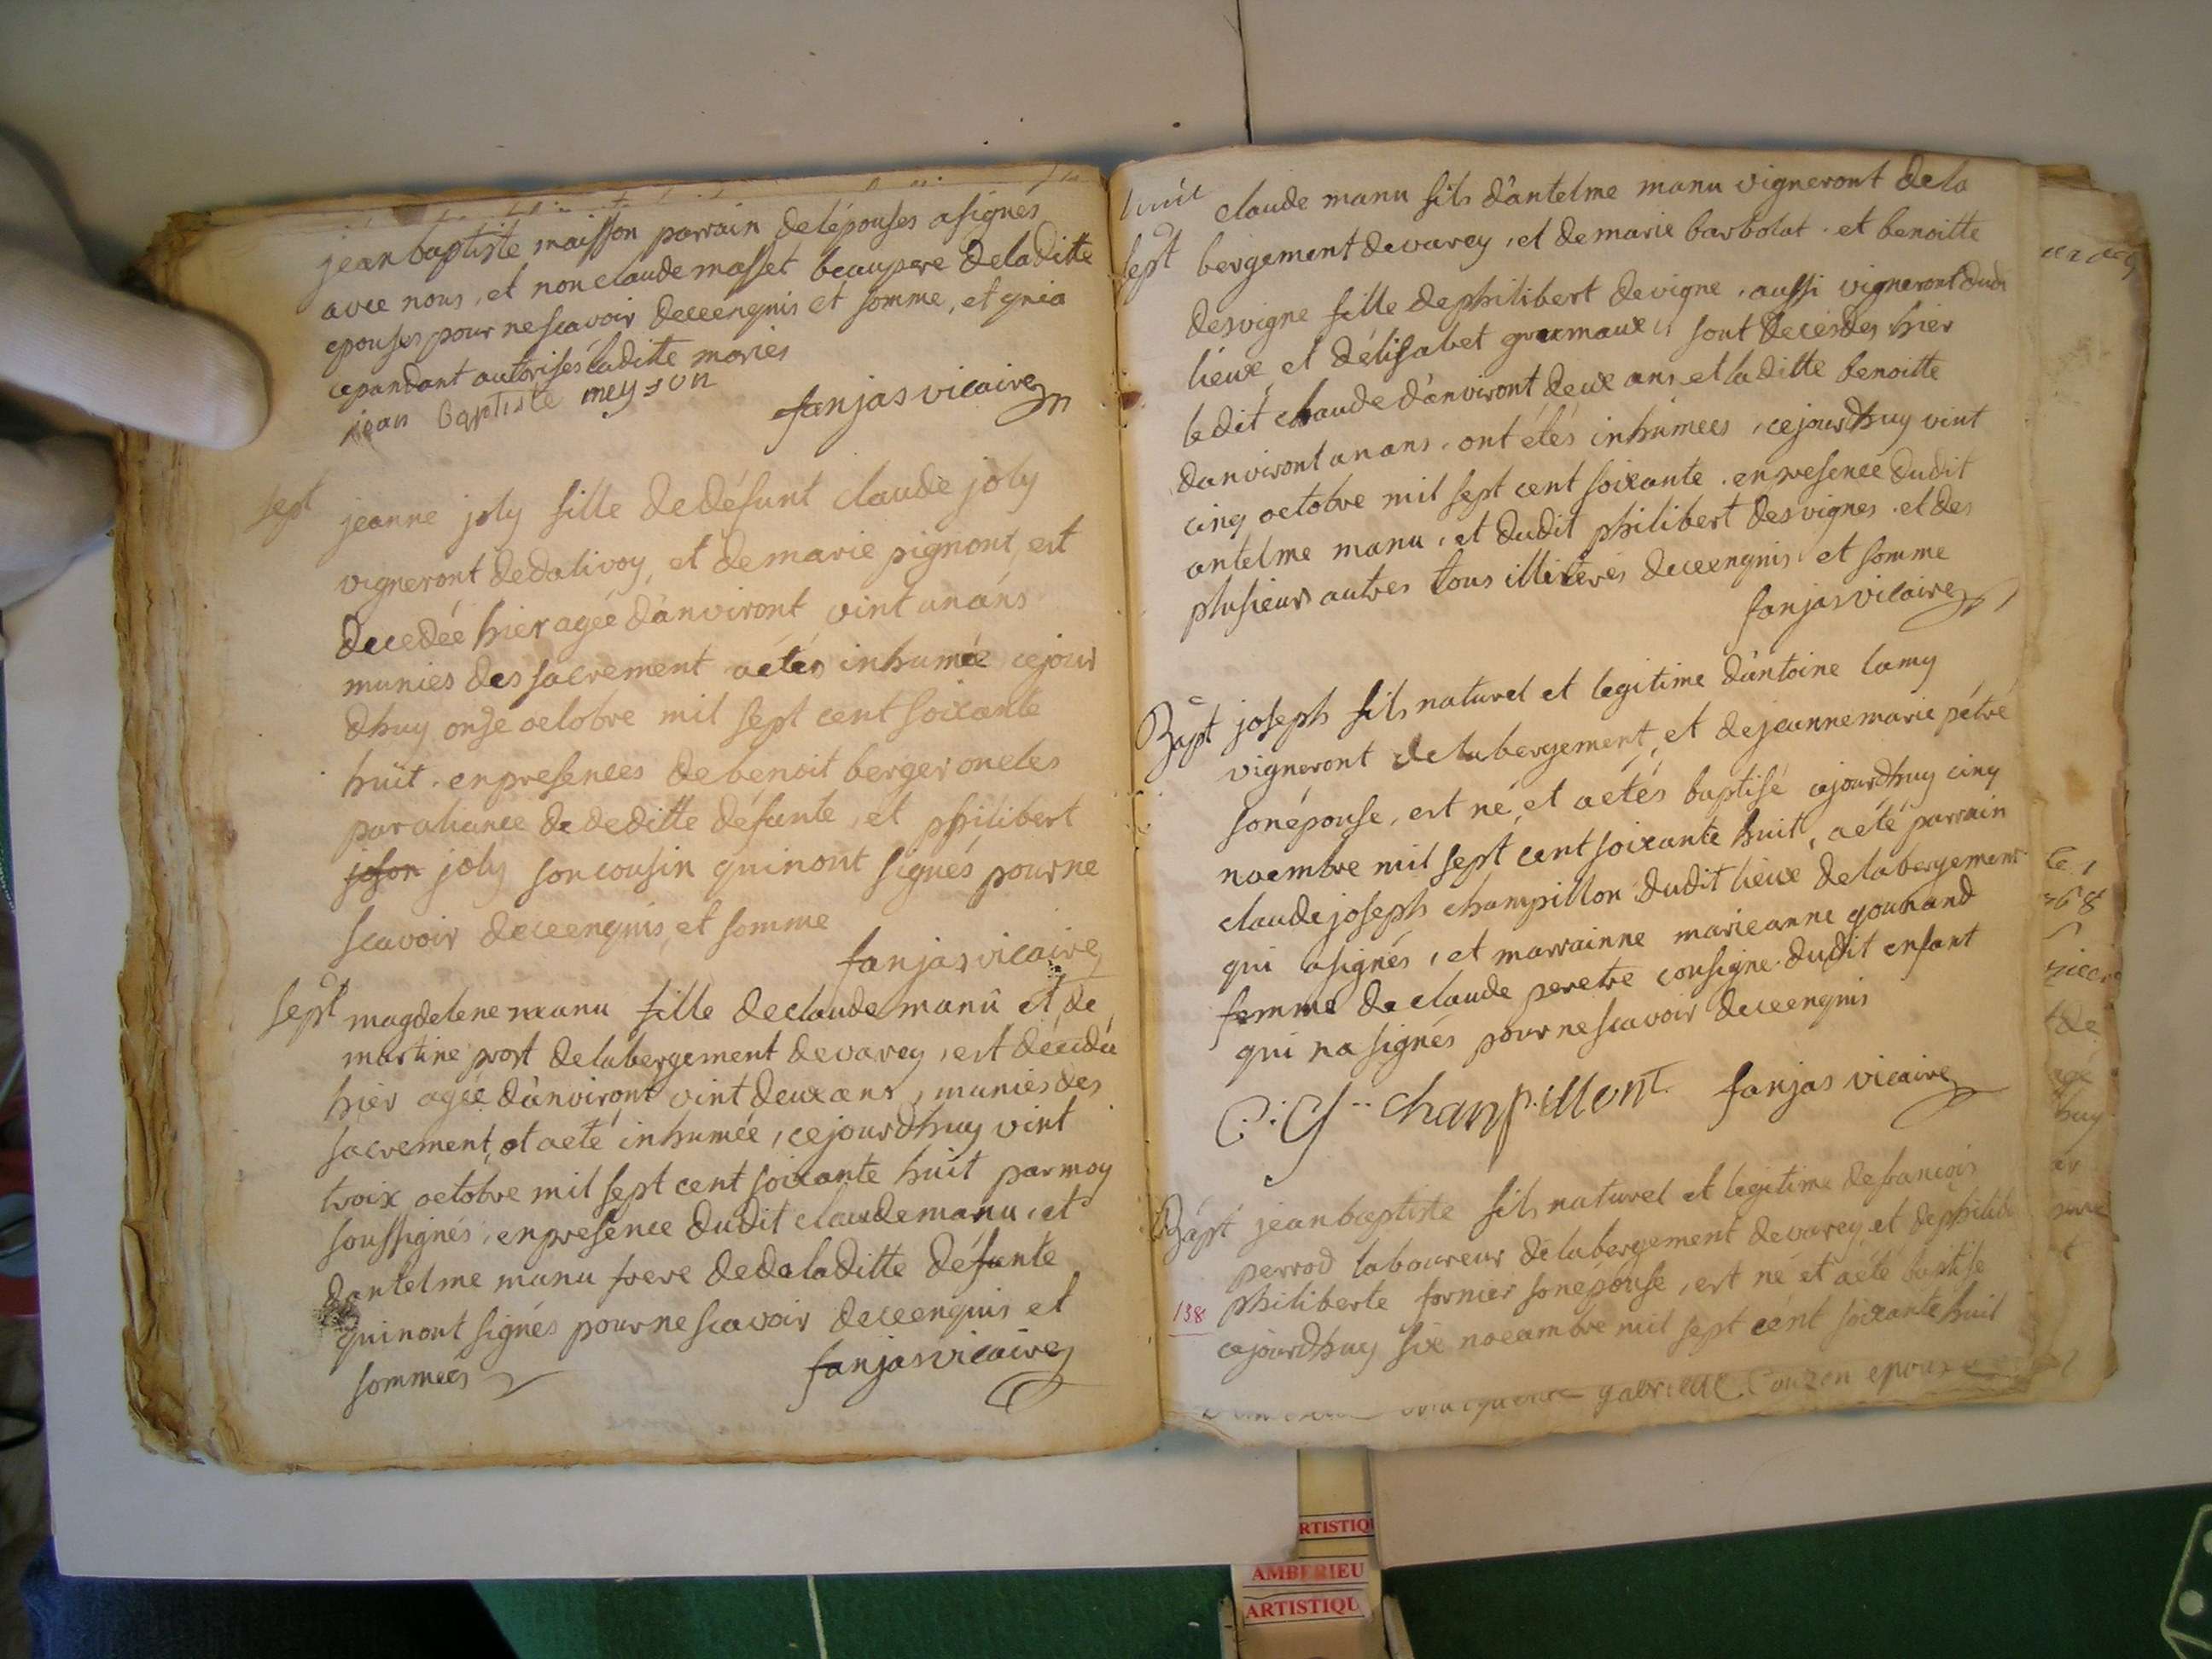 jean baptiste maisson parrain de lépouses asignés
avec nous, et non claude masset beaupere de laditte
epouses pour ne scavoir de ce enquis et somme, et qui a
cepandant autorises laditte mories
jean baptiste meyson
fanjas vicaire
sept jeanne joly fille de défunt claude joly
vigneront de dalivoy, et de marie pignont, est
decedée hier agée danviront vint un ans
munies des sacrement aétés inhumée cejour
dhuy onse octobre mil sept cent soixante
huit. en presences de benoit berger oncles
par aliance de deditte défunte, et philibert
joson joly son cousin qui nont signés pour ne
scavoir de ce enquis, et somme
fanjas vicaire
sept magdelene manu fille de claude manu et de
martine prost de labergement de varey, est décédé
hier agée danviront vint deux ans, munies des
sacrement, et aeté inhumée, cejourdhuy vint
troix octobre mil sept cent soixante huit par moy
soussignés, en presence dudit claude manu, et
dantelme manu frere de da laditte défunte
qui nont signés pour ne scavoir de ce enquis et
sommees
fanjas vicaire
huit claude manu fils dantelme manu vigneront de la
sept bergement de varey, et de marie barbolat. et benoitte
desvigne fille de philibert devigne, aussi vigneront dudi
lieux, et délisabet sont decesdes hier
ledit claude danviront deux ans et laditte benoitte
danviront un ans. ont étés inhumees, cejourdhuy vint
cinq octobre mil sept cent soixante. en presence dudit
antelme manu, et dudit philibert des vignes. et des
plusieurs autres tous illiterés de ce enquis, et somme
fanjas vicaire
Bapt joseph fils naturel et legitime dantoine lamy
vigneront de labergement, et de jeanne marie pétre
son épouse, est né, et aétés baptisé ajourdhuy cinq
noembre mil sept cent soixante huit, aété parrain
claude joseph champillon dudit lieux de labergement
qui asignés, et marrainne marie anne gounand
femme de claude peretre consigne dudit enfant
qui na signés pour ne scavoir de ce enquis
C: J Chanpillont fanjas vicaire
Bapt jean baptiste fils naturel et legitime de francois
perrod laboureur de labergement de varey et de philib
138 philiberte fornier son épouse, est né et aété baptise
ajourdhuy six noeambre mil sept cent soixante huit
gabrielle Couzon epouse
RTISTIQ
AMBERIEU
ARTISTIQU